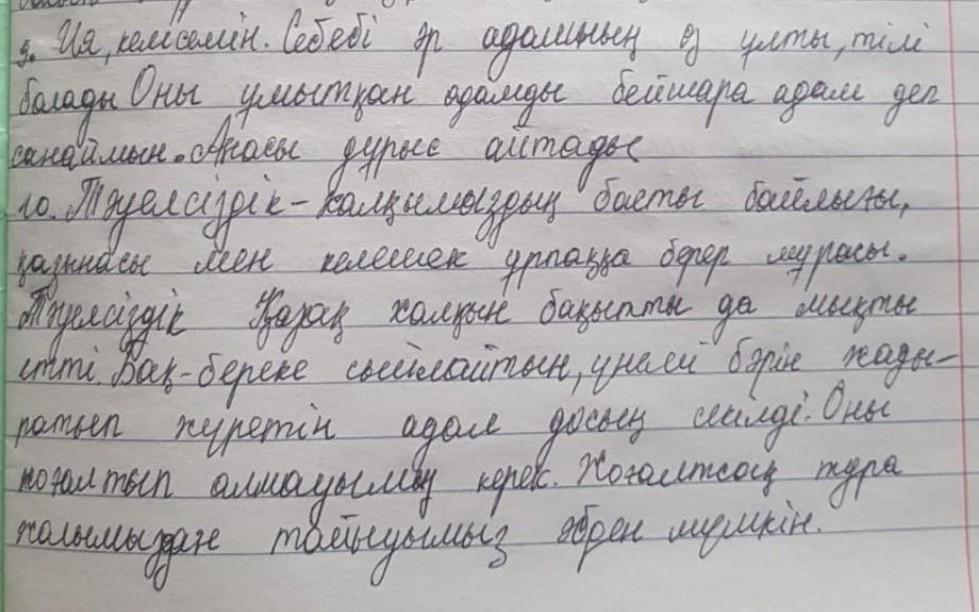 9. Ия, келісемін. Себебі әр адамның өз ұлты, тілі
болады Оны ұмытқан адамды бейшара адам деп
санаймын. Анасы дұрыс айтады
10. Тәуелсіздік - халқымыздың басты байлығы,
қазынасы мен келешек ұрпаққа берер мұрасы.
Тәуелсіздік Қазақ халқын бақытты да мықты
етті. Бақ-береке сыйлайтын, үнемі бәрін жады-
ратып жүретін адам досың секілді. Оны
жоғалтып алмауымыз керек. Жоғалтсақ тура
жолымыздан таюымыз әбден мүмкін.